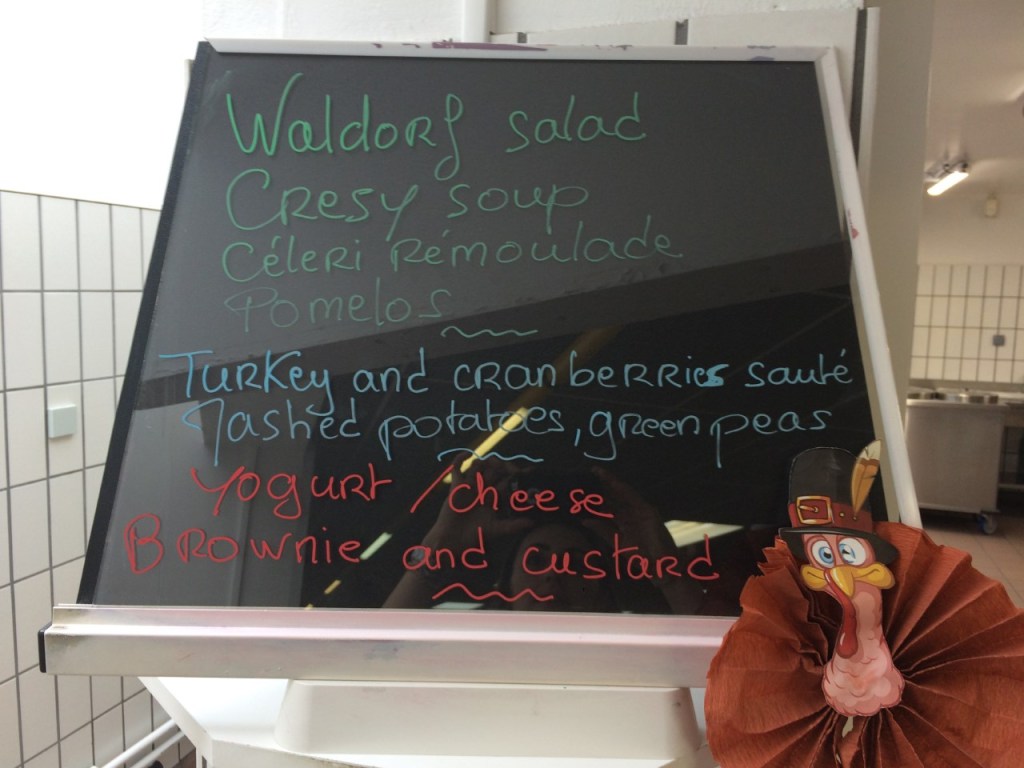 Waldorf salad
Cresy soup
Céleri Rémoulade
Pomelos
Turkey and cranberries sauté
Mashed potatoes, green peas
Yogurt / cheese
Brownie and custard